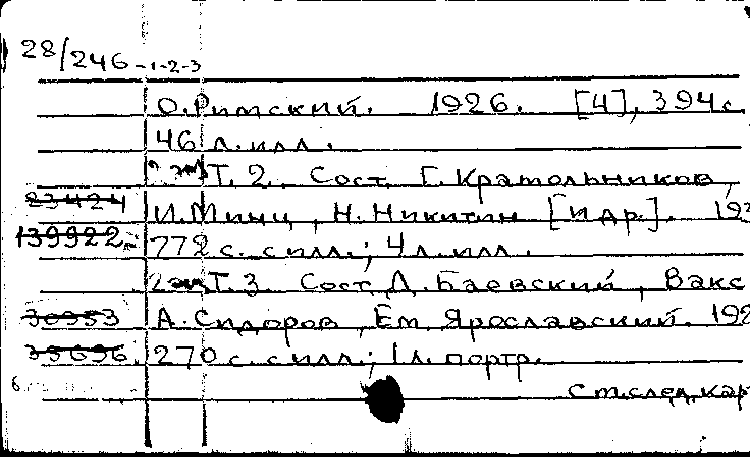 28/246-1-2-3
О.Римский. 1926. [4], 394 с.
46 л. илл.
2 экз Т. 2. Сост. Г. Крамольников,
23424 И. Минц, Н. Никитин [и др.]. 193
139922 772 с. с илл.; 4 л. илл.
2 экз Т. 3. Сост. Д. Баевский, Вакс
30953 А. Сидоров, Ем. Ярославский. 192
35696 270 с. с илл.; 1 л. портр.
См. след. кар